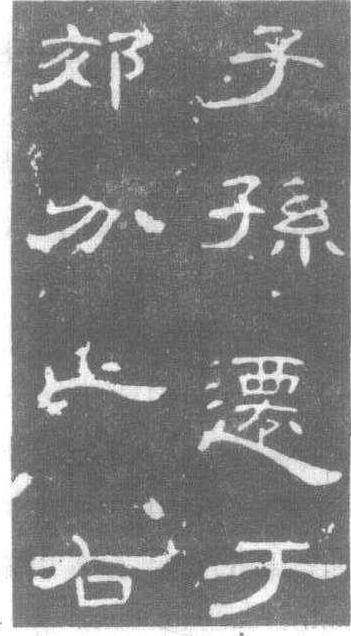 子孫遷于
郊分止右